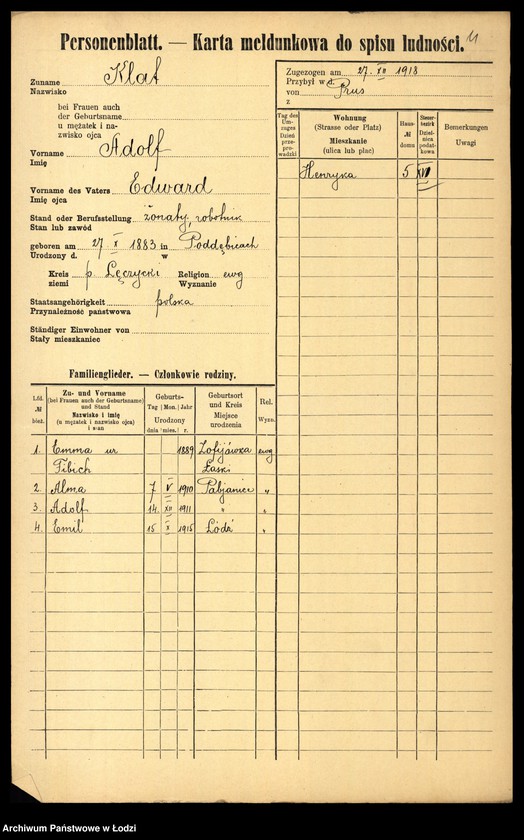 Personenblatt. — Karta meldunkowa do spisu ludności.
Zuname Klat
Nazwisko
bei Frauen auch
der Geburtsname
u mężatek i na-
zwisko ojca
Vorname Adolf
Imię
Vorname des Vaters Edward
Imię ojca
Stand oder Berufsstellung żonaty, robotnik
Stan lub zawód
geboren am 27 X 1883 in Poddębicach
Urodzony d. w
Kreis p. Łęczycki Religion ewg
ziemi Wyznanie
Staatsangehörigkeit polska
Przynależność państwowa
Ständiger Einwohner von
Stały mieszkaniec
Zugezogen am 27. XII 1918
Przybył w d.
von Prus
z
Tag des Um-zuges Dzień prze-prowadzki
Wohnung
(Strasse oder Platz)
Mieszkanie
(ulica lub plac)
Haus-
№
domu
Steuer-bezirk Dzielnica podatkowa
Bemerkungen
Uwagi
Henryka 5 XVI
Familienglieder. — Członkowie rodziny.
Lfd.
№
bież.
Zu- und Vorname
(bei Frauen auch der Geburtsname)
und Stand
Nazwisko i imię
(u mężatek i nazwisko ojca)
i stan
Geburts-
Tag Mon. Jahr
Urodzony
dnia mies. r.
Geburtsort
und Kreis
Miejsce
urodzenia
Rel.
Wyzn.
1. Emma ur 1889 Zofijówka ewg
Fibich Łaski
2. Alma 7 V 1910 Pabjanice "
3. Adolf 14 XII 1911 " "
4. Emil 15 X 1915 Łódź "
Archiwum Państwowe w Łodzi